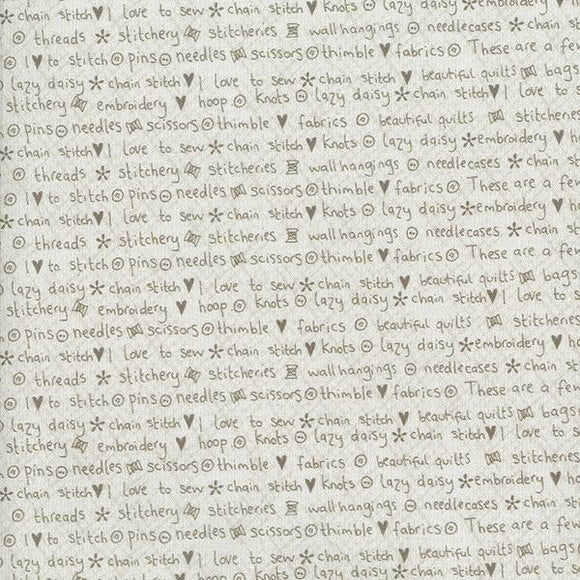 chain stitch I love to sew chain stitch Knots lazy daisy embroidery ho
threads stitchery stitcheries wall hangings needlecases chain sti
I to stitch pins needles scissors thimble fabrics These are a few
lazy daisy chain stitch I love to sew chain stitch beautiful quilts bags
stitchery embroidery hoop Knots lazy daisy chain stitch I love to s
pins needles scissors thimble fabrics beautiful quilts stitcheries
chain stitch I love to sew chain stitch Knots lazy daisy embroidery ho
threads stitchery stitcheries wall hangings needlecases chain sti
I to stitch pins needles scissors thimble fabrics These are a few
chain stitch I love to sew chain stitch Knots lazy daisy embroidery ho
threads stitchery stitcheries wall hangings needlecases chain sti
I to stitch pins needles scissors thimble fabrics These are a few
lazy daisy chain stitch I love to sew chain stitch beautiful quilts bags
stitchery embroidery hoop Knots lazy daisy chain stitch I love to s
pins needles scissors thimble fabrics beautiful quilts stitcheries
chain stitch I love to sew chain stitch Knots lazy daisy embroidery ho
threads stitchery stitcheries wall hangings needlecases chain sti
I to stitch pins needles scissors thimble fabrics These are a few
lazy daisy chain stitch I love to sew chain stitch beautiful quilts bags
stitchery embroidery hoop Knots lazy daisy chain stitch I love to s
pins needles scissors thimble fabrics beautiful quilts stitcheries
chain stitch I love to sew chain stitch Knots lazy daisy embroidery ho
threads stitchery stitcheries wall hangings needlecases chain sti
I to stitch pins needles scissors thimble fabrics These are a few
lazy daisy chain stitch I love to sew chain stitch beautiful quilts bags
stitchery embroidery hoop Knots lazy daisy chain stitch I love to s